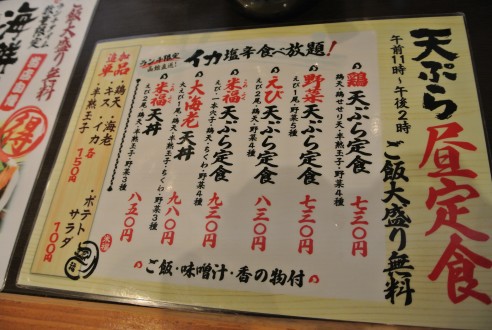 天ぷら昼定食
午前11時〜午後2時 ご飯大盛り無料
イカ塩辛食べ放題!
ランチ限定
函館直送!
鶏天ぷら定食 七三〇円
鶏天・鶏せせり天・半熟玉子・野菜4種
野菜天ぷら定食 七三〇円
えび1尾・野菜
えび天ぷら定食 八三〇円
えび2尾・鶏天・野菜4種
米福天ぷら定食 九三〇円
こめふく
鶏天・ちくわ・野菜4種
大海老天丼 九八〇円
大えび1尾・鶏天・半熟玉子・ちくわ・野菜4種
米福天丼 八五〇円
こめふく
えび2尾・鶏天・半熟玉子・野菜3種
ご飯・味噌汁・香の物付
追加単品
・鶏天・海老
・キス・イカ
・半熟玉子
各150円
・ポテトサラダ
100円
ご飯大盛り無料
海鮮
得